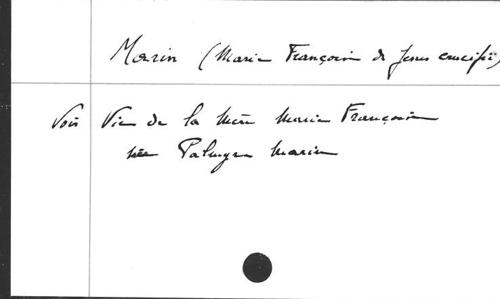 Morin (Marie Françoise de Jesus crucifié)
Voir Vie de la Mère Marie Françoise
née Palmyre Marin